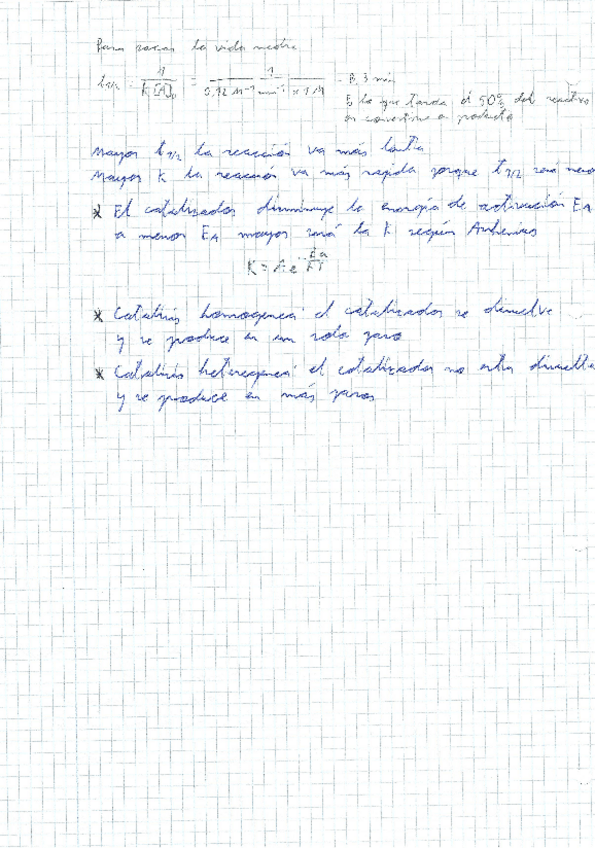 Para sacar la vida media
t1/2 = 1 / K [A]0 = 1 / 0,12 M-1 min-1 x 1 M = 8,3 min
Es lo que tarda el 50% del reactivo
en convertirse en producto
Mayor t1/2 la reacción va más lenta
Mayor K la reacción va más rapida porque t1/2 será menor
* El catalizador disminuye la energía de activación EA
a menor EA mayor será la K según Arrhenius
K = A e -Ea/RT
* Catalisis homogenea: el catalizador se disuelve
y se produce en una sola fase
* Catalisis heterogenea: el catalizador no esta disuelto
y se produce en más fases